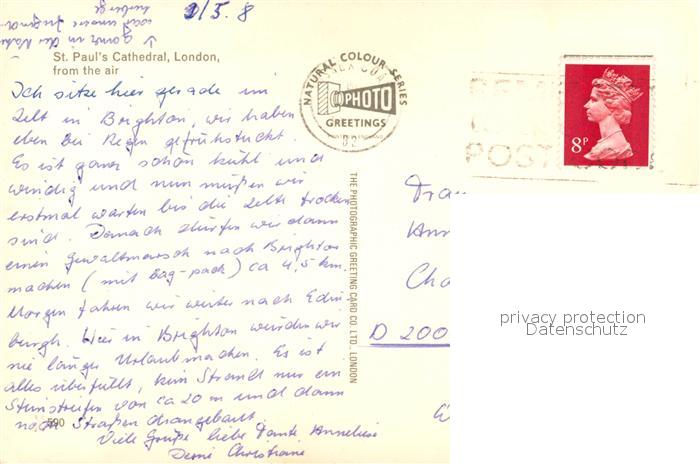 2/5. 8
ganz in der Nähe
war unsere Jugend-
herberge
St. Paul's Cathedral, London,
from the air
Ich sitze hier gerade im
Zelt in Brighton, wir haben
eben bei Regen gefrühstückt
Es ist ganz schön kühl und
windig und nun müßen wir
erstmal warten bis die Zelte trocken
sind. Danach dürfen wir dann
einen Gewaltmarsch nach Brighton
machen (mit bag-pack) ca 4,5 km.
Morgen fahren wir weiter nach Edin
burgh. Hier in Brighton würden wir
nie länger Urlaub machen. Es ist
alles überfüllt, kein Strand nur ein
Steinstreifen von ca 20 m und dann
noch Straßen drangebaut.
Viele Grüße liebe Tante Anneliese
Deine Christiane
590
NATURAL COLOUR SERIES
PHOTO
GREETINGS
THE PHOTOGRAPHIC GREETING CARD CO. LTD. LONDON
8P
POST
Frau
Ann
Cha
D 200
privacy protection
Datenschutz